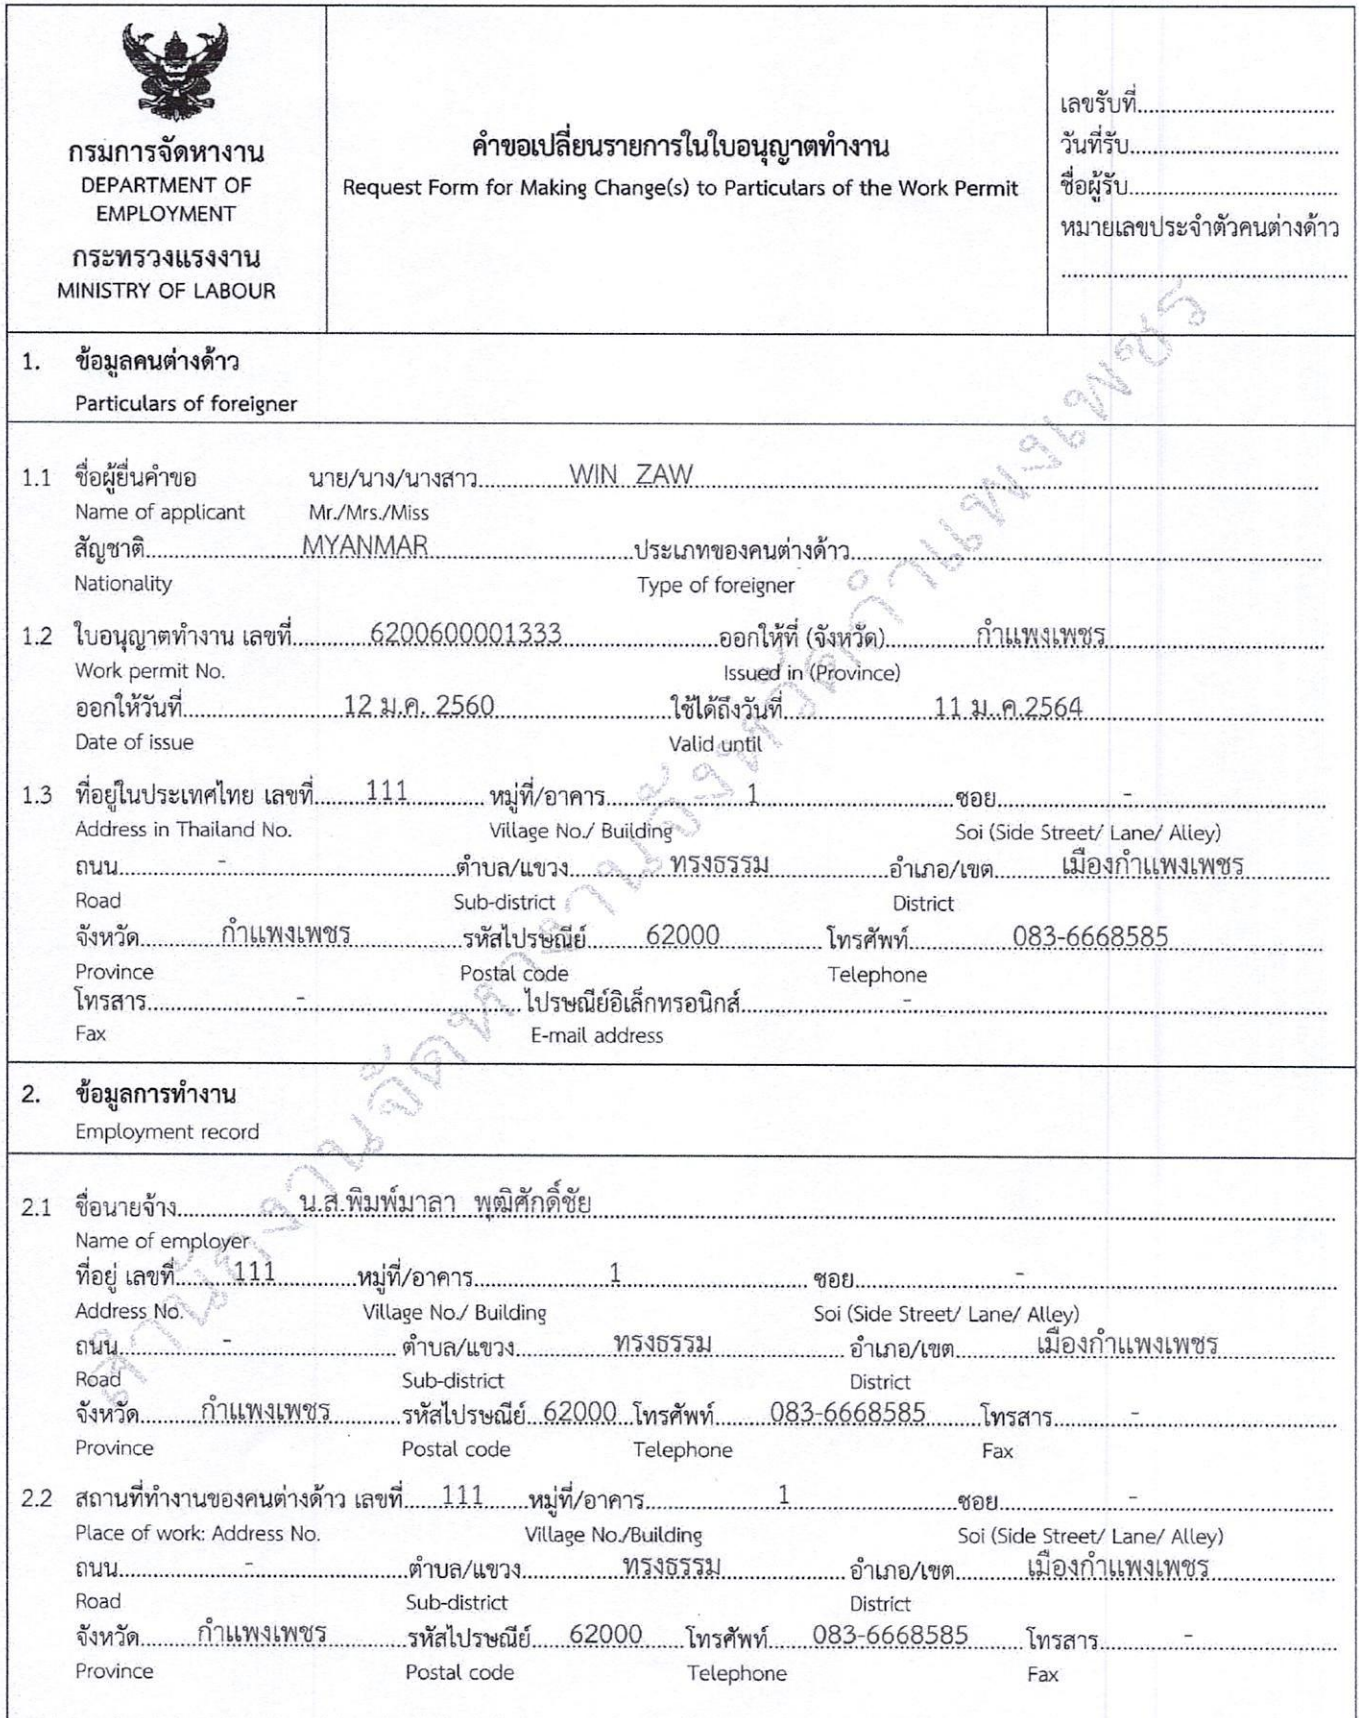 กรมการจัดหางาน
DEPARTMENT OF
EMPLOYMENT
กระทรวงแรงงาน
MINISTRY OF LABOUR
คำขอเปลี่ยนรายการในใบอนุญาตทำงาน
Request Form for Making Change(s) to Particulars of the Work Permit
เลขรับที่..............................
วันที่รับ................................
ชื่อผู้รับ................................
หมายเลขประจำตัวคนต่างด้าว
............................................
1. ข้อมูลคนต่างด้าว
Particulars of foreigner
1.1 ชื่อผู้ยื่นคำขอ นาย/นาง/นางสาว WIN ZAW
Name of applicant Mr./Mrs./Miss
สัญชาติ MYANMAR ประเภทของคนต่างด้าว
Nationality Type of foreigner
1.2 ใบอนุญาตทำงาน เลขที่ 6200600001333 ออกให้ที่ (จังหวัด) กำแพงเพชร
Work permit No. Issued in (Province)
ออกให้วันที่ 12 ม.ค. 2560 ใช้ได้ถึงวันที่ 11 ม..ค.2564
Date of issue Valid until
1.3 ที่อยู่ในประเทศไทย เลขที่ 111 หมู่ที่/อาคาร 1 ซอย -
Address in Thailand No. Village No./ Building Soi (Side Street/ Lane/ Alley)
ถนน - ตำบล/แขวง ทรงธรรม อำเภอ/เขต เมืองกำแพงเพชร
Road Sub-district District
จังหวัด กำแพงเพชร รหัสไปรษณีย์ 62000 โทรศัพท์ 083-6668585
Province Postal code Telephone
โทรสาร - ไปรษณีย์อิเล็กทรอนิกส์ -
Fax E-mail address
2. ข้อมูลการทำงาน
Employment record
2.1 ชื่อนายจ้าง น.ส.พิมพ์มาลา พุฒิศักดิ์ชัย
Name of employer
ที่อยู่ เลขที่ 111 หมู่ที่/อาคาร 1 ซอย -
Address No. Village No./ Building Soi (Side Street/ Lane/ Alley)
ถนน - ตำบล/แขวง ทรงธรรม อำเภอ/เขต เมืองกำแพงเพชร
Road Sub-district District
จังหวัด กำแพงเพชร รหัสไปรษณีย์ 62000 โทรศัพท์ 083-6668585 โทรสาร -
Province Postal code Telephone Fax
2.2 สถานที่ทำงานของคนต่างด้าว เลขที่ 111 หมู่ที่/อาคาร 1 ซอย -
Place of work: Address No. Village No./Building Soi (Side Street/ Lane/ Alley)
ถนน - ตำบล/แขวง ทรงธรรม อำเภอ/เขต เมืองกำแพงเพชร
Road Sub-district District
จังหวัด กำแพงเพชร รหัสไปรษณีย์ 62000 โทรศัพท์ 083-6668585 โทรสาร -
Province Postal code Telephone Fax
สำนักงานจัดหางานจังหวัดกำแพงเพชร